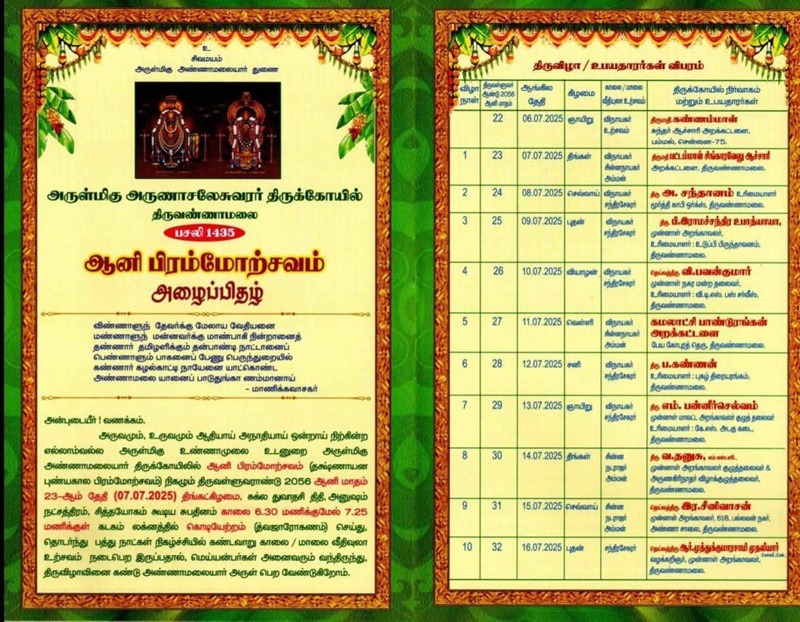 உ
சிவமயம்
அருள்மிகு அண்ணாமலையார் துணை
அருள்மிகு அருணாசலேசுவரர் திருக்கோயில்
திருவண்ணாமலை
பசலி 1435
ஆனி பிரம்மோற்சவம்
அழைப்பிதழ்
விண்ணாளுந் தேவர்க்கு மேலாய வேதியனை
மண்ணாளும் மன்னவர்க்கு மாண்பாகி நின்றானைத்
தண்ணார் தமிழளிக்கும் தன்பாண்டி நாட்டானைப்
பெண்ணாளும் பாகனைப் பேணு பெருந்துறையில்
கண்ணார் கழல்காட்டி நாயேனை யாட்கொண்ட
அண்ணாமலை யானைப் பாடுதுங்கா ணம்மானாய்
- மாணிக்கவாசகர்
அன்புடையீர் ! வணக்கம்.
அருவமும், உருவமும் ஆதியாய் அநாதியாய் ஒன்றாய் நிற்கின்ற
எல்லாம்வல்ல அருள்மிகு உண்ணாமுலை உடனுறை அருள்மிகு
அண்ணாமலையார் திருக்கோயிலில் ஆனி பிரம்மோற்சவம் (தக்ஷிணாயன
புண்யகால பிரம்மோற்சவம்) நிகழும் திருவள்ளுவராண்டு 2056 ஆனி மாதம்
23-ஆம் தேதி (07.07.2025) திங்கட்கிழமை, சுக்ல துவாதசி திதி, அனுஷம்
நட்சத்திரம், சித்தயோகம் கூடிய சுபதினம் காலை 6.30 மணிக்குமேல் 7.25
மணிக்குள் கடகம் லக்னத்தில் கொடியேற்றம் (த்வஜாரோகணம்) செய்து,
தொடர்ந்து பத்து நாட்கள் நிகழ்ச்சியில் கண்டவாறு காலை / மாலை வீதிவுலா
உற்சவம் நடைபெற இருப்பதால், மெய்யன்பர்கள் அனைவரும் வந்திருந்து,
திருவிழாவினை கண்டு அண்ணாமலையார் அருள் பெற வேண்டுகிறோம்.
திருவிழா / உபயதாரர்கள் விபரம்
விழா நாள் திருவள்ளுவர் ஆண்டு 2056 ஆனி மாதம் ஆங்கில தேதி கிழமை காலை / மாலை வீதியுலா உற்சவம் திருக்கோயில் நிர்வாகம் மற்றும் உபயதாரர்கள்
22 06.07.2025 ஞாயிறு விநாயகர் உற்சவம் திருமதி கண்ணம்மாள்
சுந்தர் ஆச்சாரி அறக்கட்டளை,
பம்மல், சென்னை-75.
1 23 07.07.2025 திங்கள் விநாயகர் சின்னநாயகர் அம்மன் திருமதி பட்டம்மாள் சிங்காரவேலு ஆச்சாரி
அறக்கட்டளை, திருவண்ணாமலை.
2 24 08.07.2025 செவ்வாய் விநாயகர் சந்திரசேகரர் திரு அ. சந்தானம் உரிமையாளர்
மூர்த்தி காபி ஒர்க்ஸ், திருவண்ணாமலை.
3 25 09.07.2025 புதன் விநாயகர் சந்திரசேகரர் திரு பி.இராமச்சந்திர உபாத்யாயா,
முன்னாள் அறங்காவலர்,
உரிமையாளர் : உடுப்பி பிருந்தாவனம்,
திருவண்ணாமலை.
4 26 10.07.2025 வியாழன் விநாயகர் சந்திரசேகரர் தெய்வத்திரு வி.பவன்குமார்
முன்னாள் நகர மன்ற தலைவர்,
உரிமையாளர் : வி.டி.எஸ். பஸ் சர்வீஸ்,
திருவண்ணாமலை.
5 27 11.07.2025 வெள்ளி விநாயகர் சந்திரசேகரர் அம்மன் கமலாட்சி பாண்டுரங்கன்
அறக்கட்டளை
பேய கோபுரத் தெரு, திருவண்ணாமலை.
6 28 12.07.2025 சனி விநாயகர் சந்திரசேகரர் திரு ப.கண்ணன்
உரிமையாளர் : புகழ் திரையரங்கம்,
திருவண்ணாமலை.
7 29 13.07.2025 ஞாயிறு விநாயகர் சந்திரசேகரர் திரு எம். பன்னீர்செல்வம்
முன்னாள் மாவட்ட அறங்காவலர் குழு தலைவர்
உரிமையாளர் : கே.எஸ். அடகு கடை,
திருவண்ணாமலை.
8 30 14.07.2025 திங்கள் சின்ன நடராஜர் அம்மன் திரு வ.தனுசு,
முன்னாள் அறங்காவலர் குழுத்தலைவர் &
அருணகிரிநாதர் விழாக்குழுத்தலைவர்,
திருவண்ணாமலை.
9 31 15.07.2025 செவ்வாய் சின்ன நடராஜர் அம்மன் தெய்வத்திரு இர.சீனிவாசன்
முன்னாள் அறங்காவலர், 6/8, பல்லவன் நகர்,
அண்ணா சாலை, திருவண்ணாமலை.
10 32 16.07.2025 புதன் சந்திரசேகரர் தெய்வத்திரு ஆர்.முத்துக்குமாரசாமி முதலியார்
வழக்கறிஞர், முன்னாள் அறங்காவலர்,
திருவண்ணாமலை.